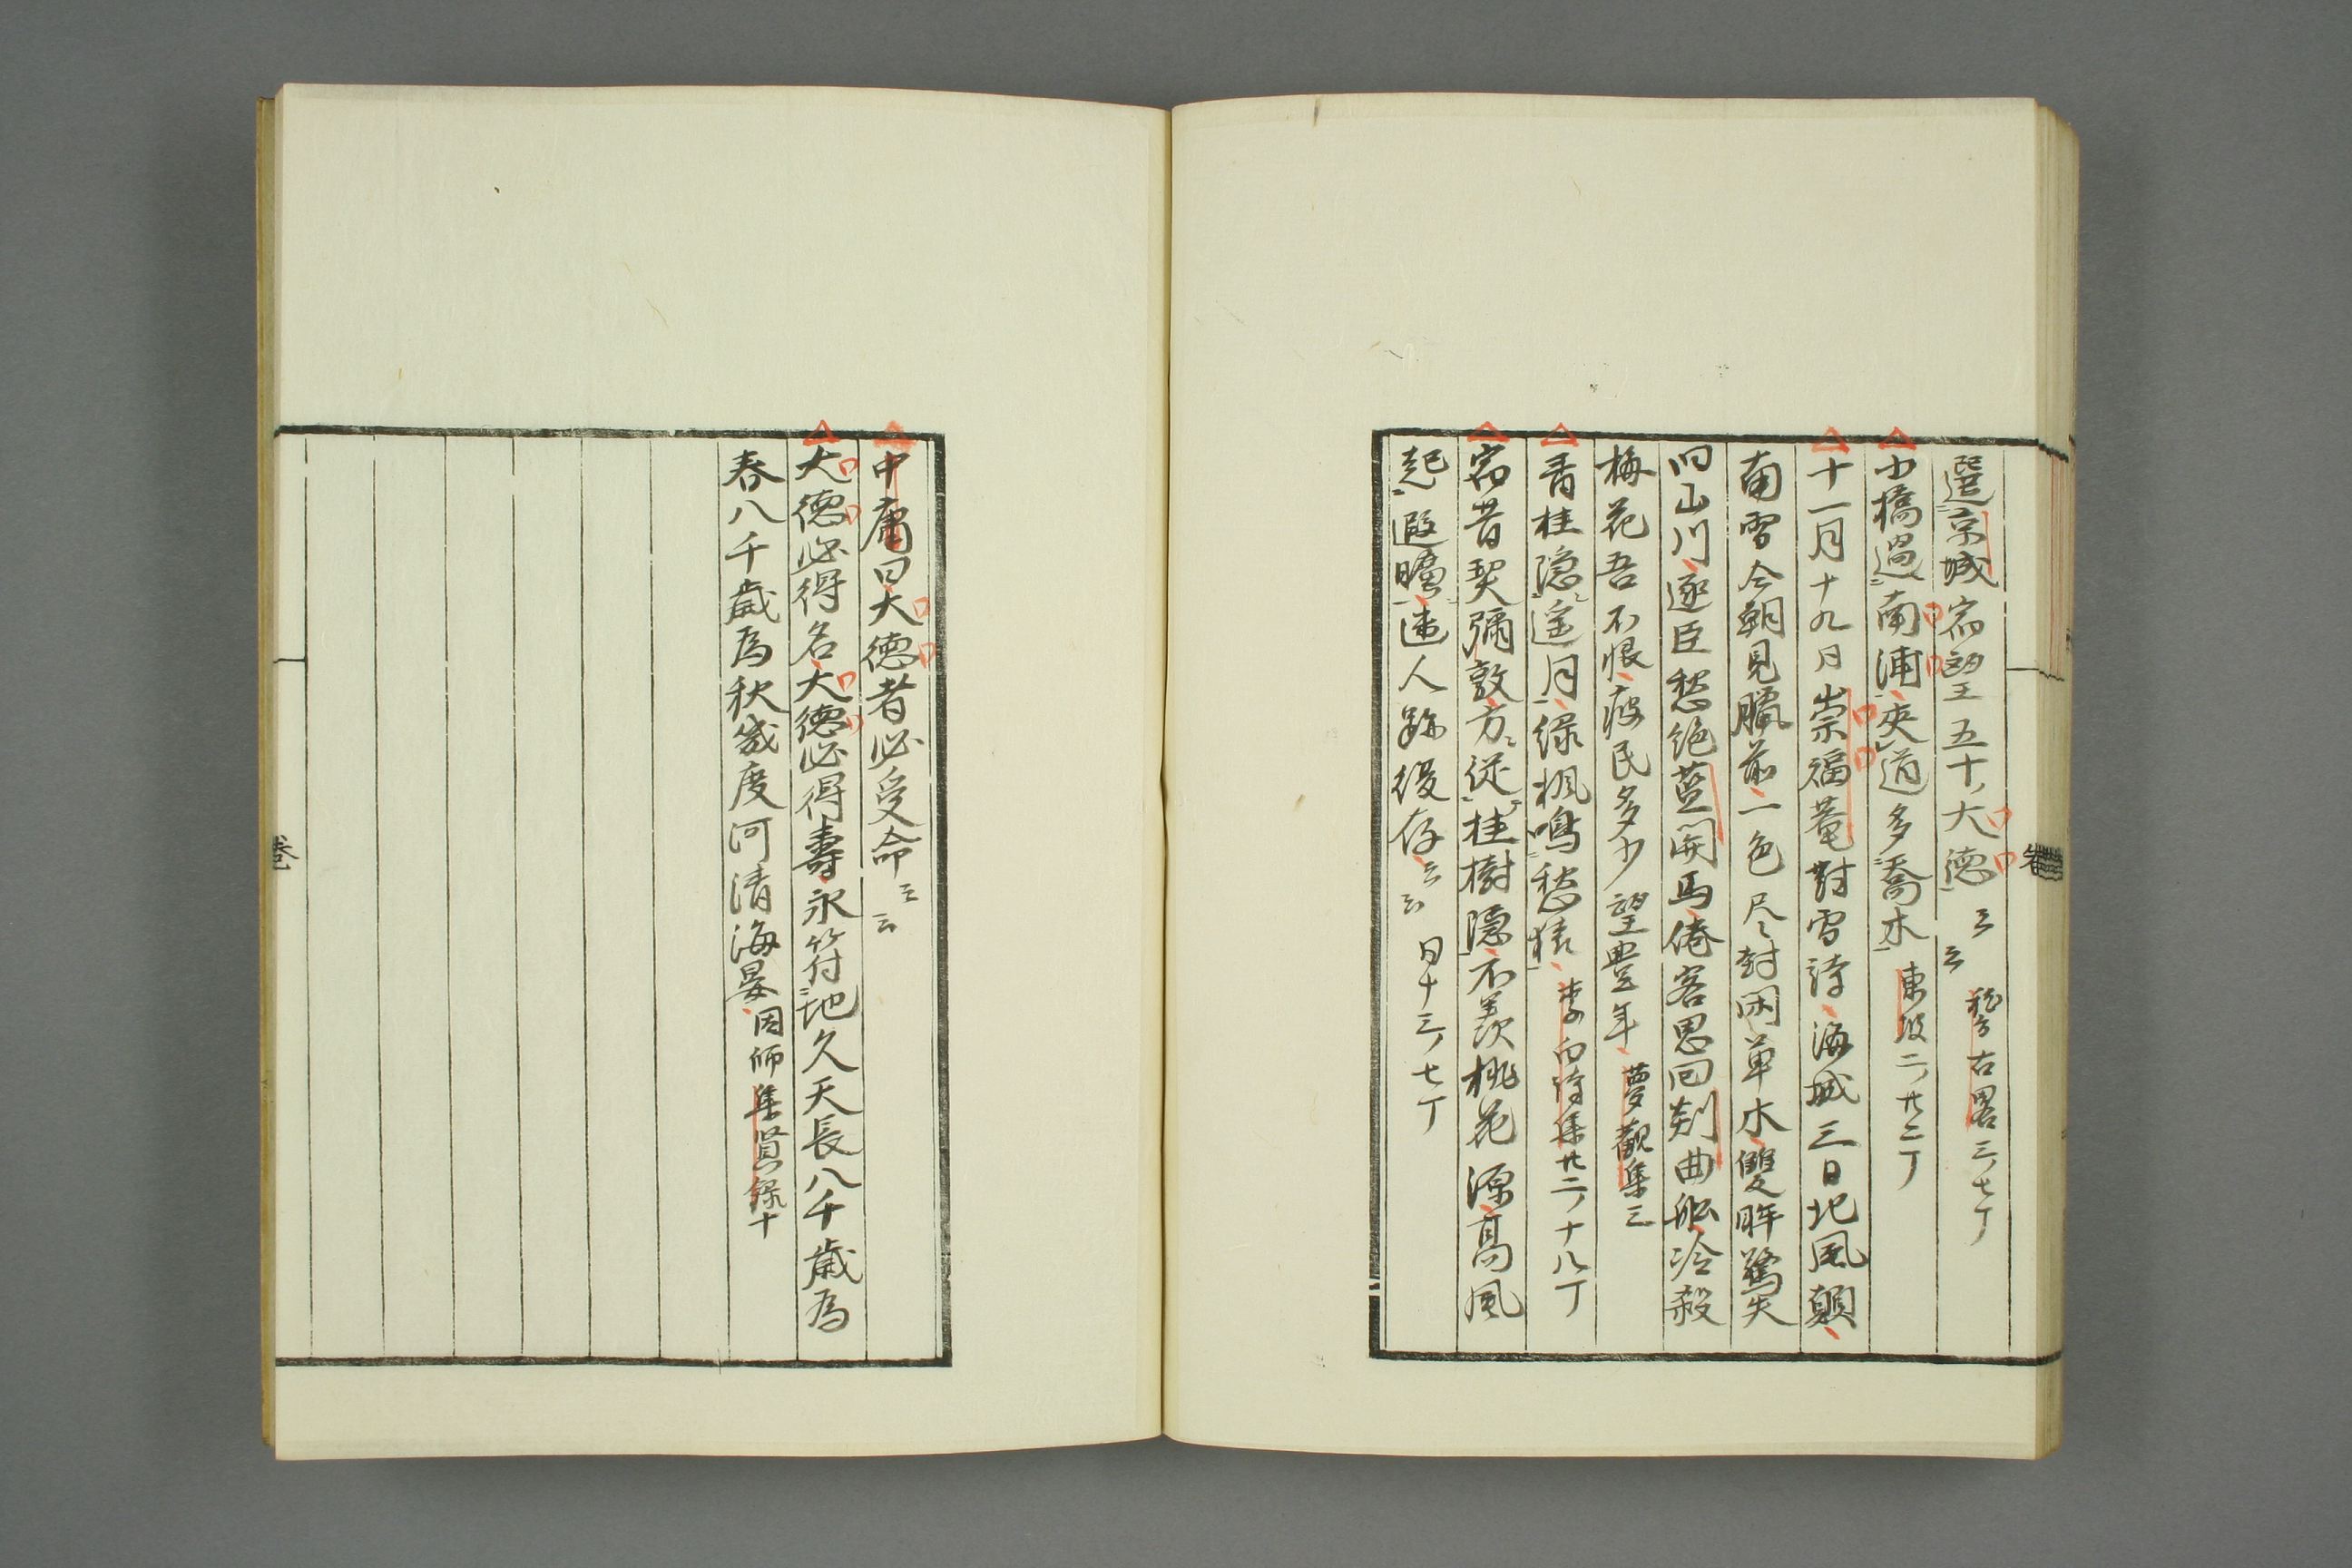 選京城宿望五十大德云云 稽古畧三ノ七丁
小橋過南浦夾道多喬木 東坡二ノ廿二丁
十一月十九日崇福菴對雪詩海城三日北風顛
南雪今朝見臘前一色尽封閑草木雙眸驚失
旧山川逐臣愁絶藍関馬倦客思回剡曲船冷殺
梅花吾不恨疲民多少望豊年 夢觀集三
青桂隱遥月緑楓鳴愁猿 李白詩集廿二ノ十八丁
宿昔契彌敦方従桂樹隱不羨桃花源高風
起遐曠速人跡復存云云 日十三ノ七丁
中庸曰大德者必受命云云
大德必得名大德必得壽永符地久天長八千歳為
春八千歳為秋幾度河清海晏因師集賢録十
卷